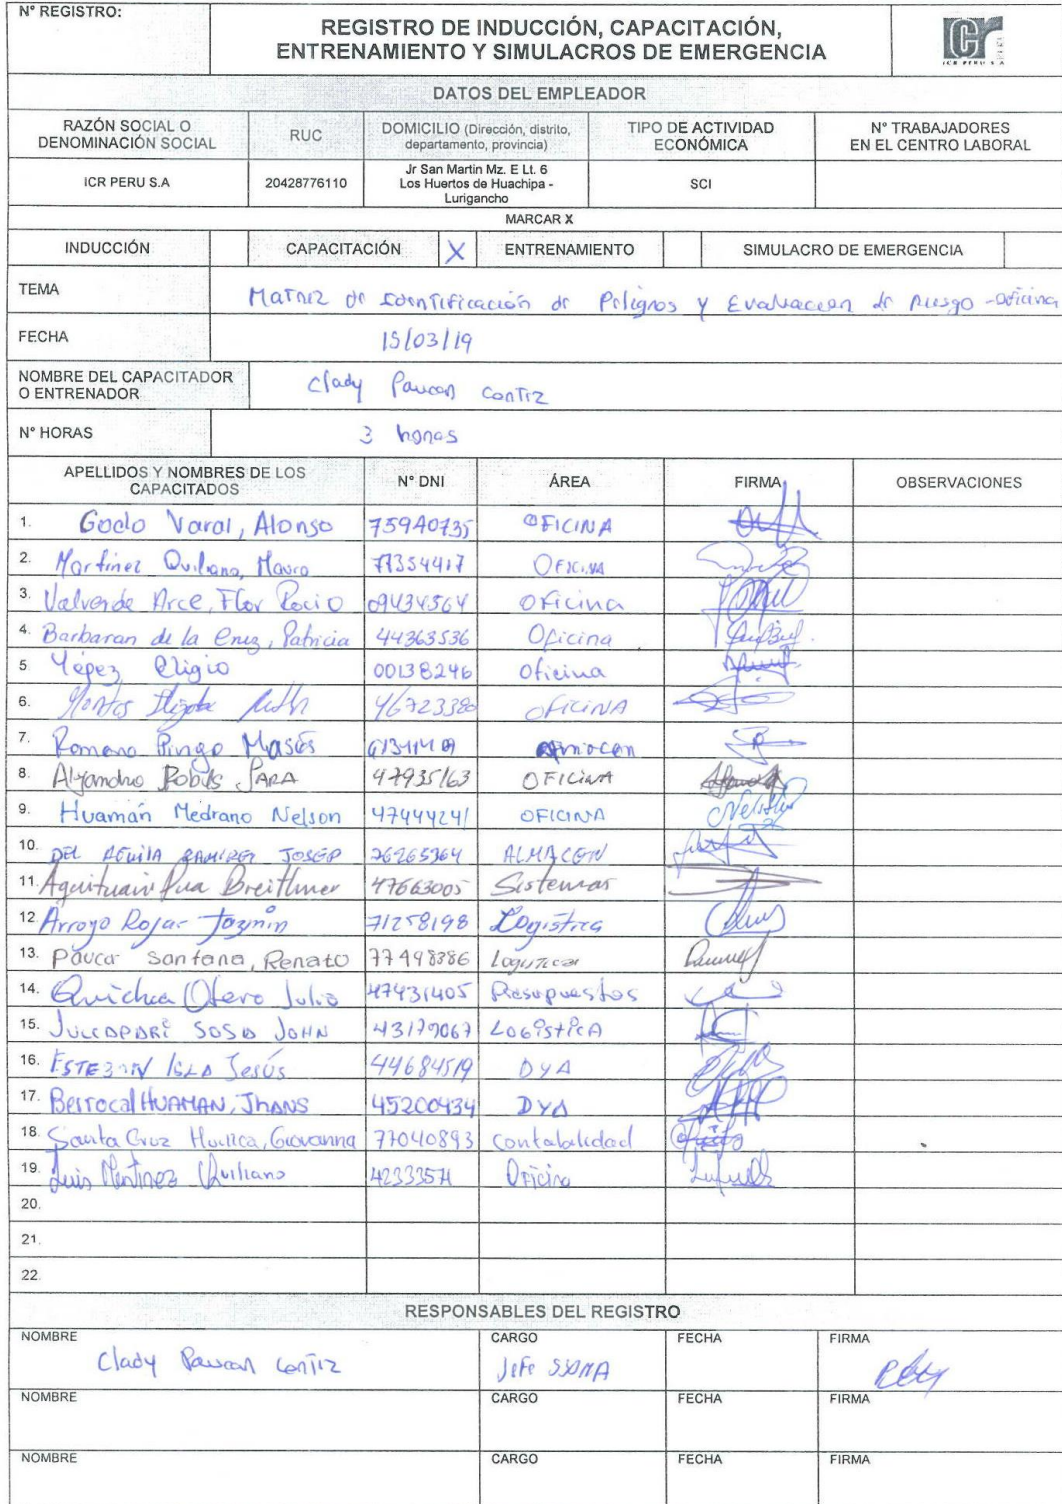 N° REGISTRO:
REGISTRO DE INDUCCIÓN, CAPACITACIÓN,
ENTRENAMIENTO Y SIMULACROS DE EMERGENCIA
ICR PERU S.A
DATOS DEL EMPLEADOR
RAZÓN SOCIAL O DENOMINACIÓN SOCIAL RUC DOMICILIO (Dirección, distrito, departamento, provincia) TIPO DE ACTIVIDAD ECONÓMICA N° TRABAJADORES EN EL CENTRO LABORAL
ICR PERU S.A 20428776110 Jr San Martin Mz. E Lt. 6 Los Huertos de Huachipa - Lurigancho SCI
MARCAR X
INDUCCIÓN CAPACITACIÓN X ENTRENAMIENTO SIMULACRO DE EMERGENCIA
TEMA Matriz de Identificación de Peligros y Evaluación de Riesgo - oficina
FECHA 15/03/19
NOMBRE DEL CAPACITADOR O ENTRENADOR Clady Paucar
N° HORAS 3 horas
APELLIDOS Y NOMBRES DE LOS CAPACITADOS N° DNI ÁREA FIRMA OBSERVACIONES
1. Alonso 75940735 OFICINA
2. Martinez Quiliano, Mauro OFICINA
3. Valverde Arce, Flor Rocio 09434564 Oficina
4. Barbaran de la Cruz, Patricia 44363536 Oficina
5 Yépez Eligio 00138246 Oficina
6. OFICINA
7. Romano Pingo Almacen
8. SARA 47935163 OFICINA
9. Huamán Medrano Nelson 47444241 OFICINA
10. DEL AGUILA RAMIREZ JOSEP ALMACEN
11. Breithner 47663005 Sistemas
12. Arroyo Rojas Jazmin 71258198 Logistica
13. Paucar Santana, Renato 77498386
14. Quichca Otero Julio 47431405 Presupuestos
15. SOSA JOHN 43179067 LOGISTICA
16. ESTEBAN ISLA Jesús 44684519 DYA
17. Berrocal HUAMAN, JhANS 45200434 DYA
18. Santa Cruz Giovanna 77040893 contabalidad
19. Luis Martinez Quiliano Oficina
20.
21.
22.
RESPONSABLES DEL REGISTRO
NOMBRE CARGO FECHA FIRMA
Clady Paucar Jefe SSOMA
NOMBRE CARGO FECHA FIRMA
NOMBRE CARGO FECHA FIRMA